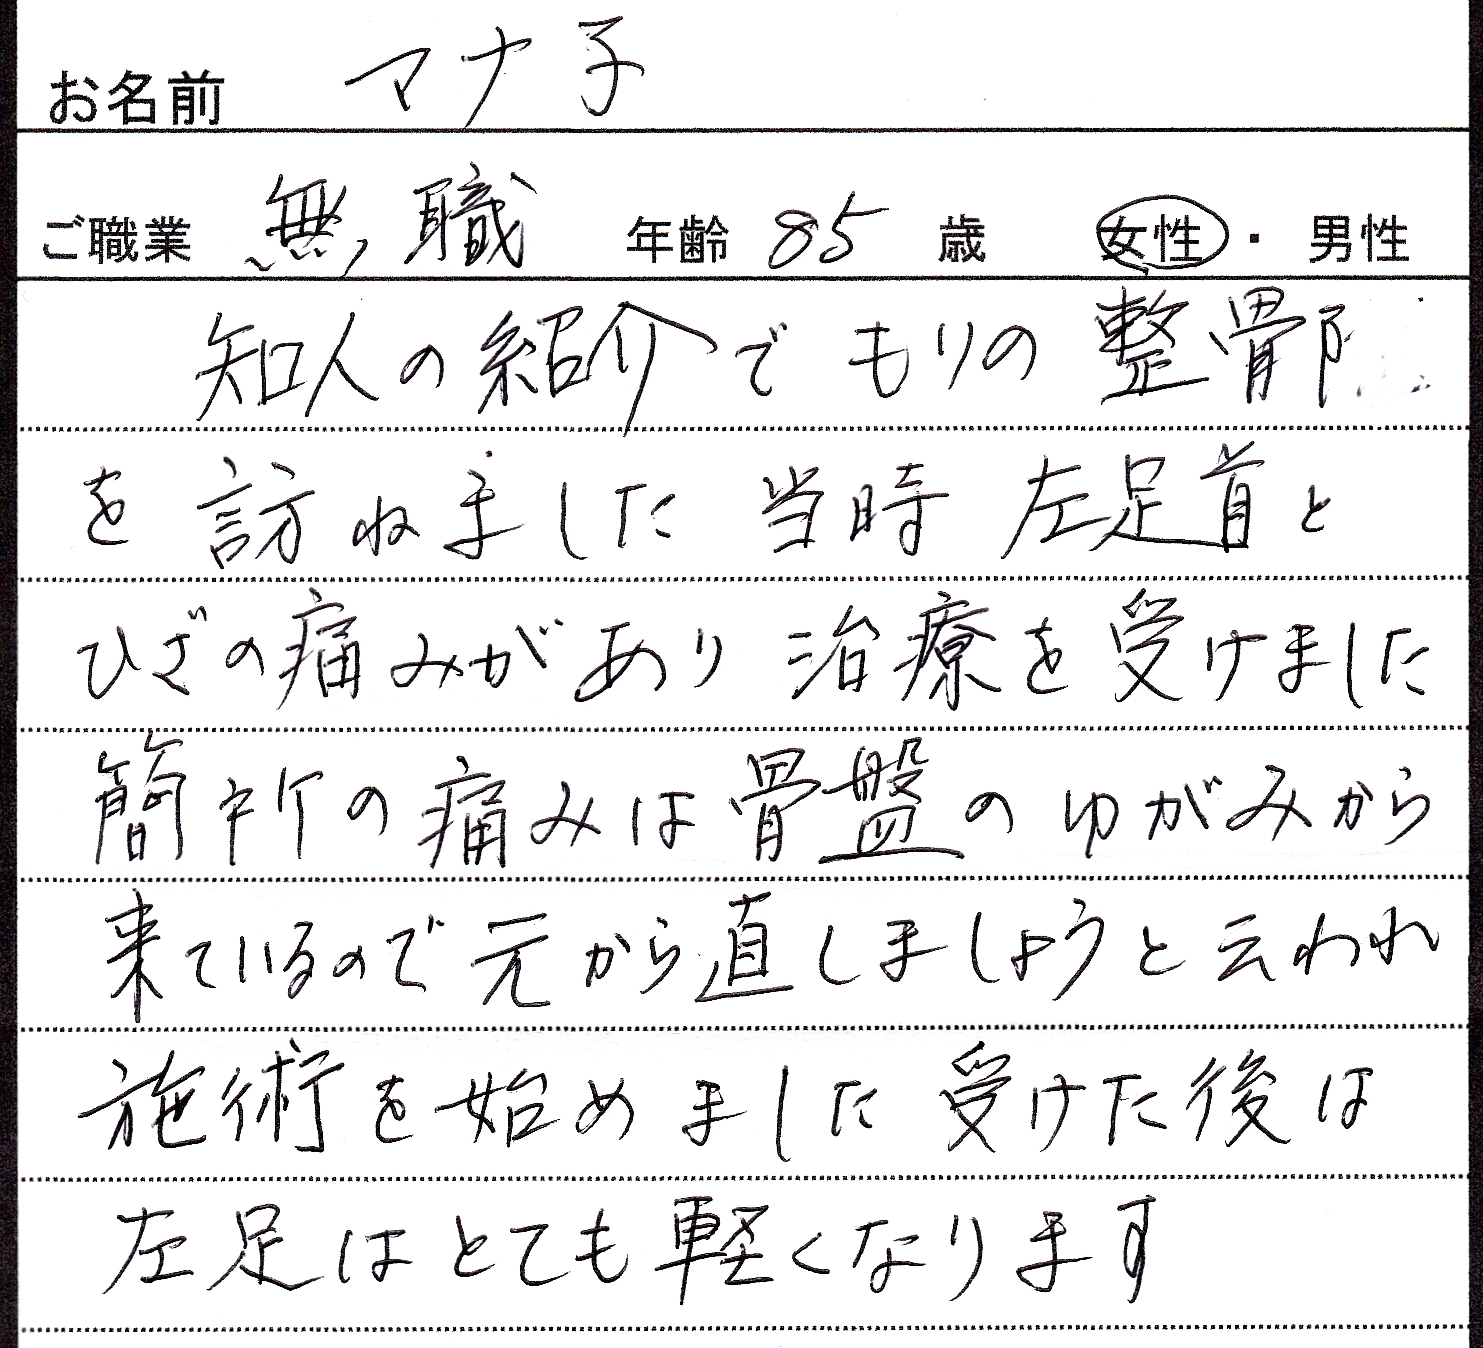 お名前 マナ子
ご職業 無職 年齢 85 歳 女性・男性
知人の紹介でもりの整骨
を訪ねました 当時 左足首と
ひざの痛みがあり 治療を受けました
簡所の痛みは骨盤のゆがみから
来ているので元から直しましょうと云われ
施術を始めました 受けた後は
左足はとても軽くなります